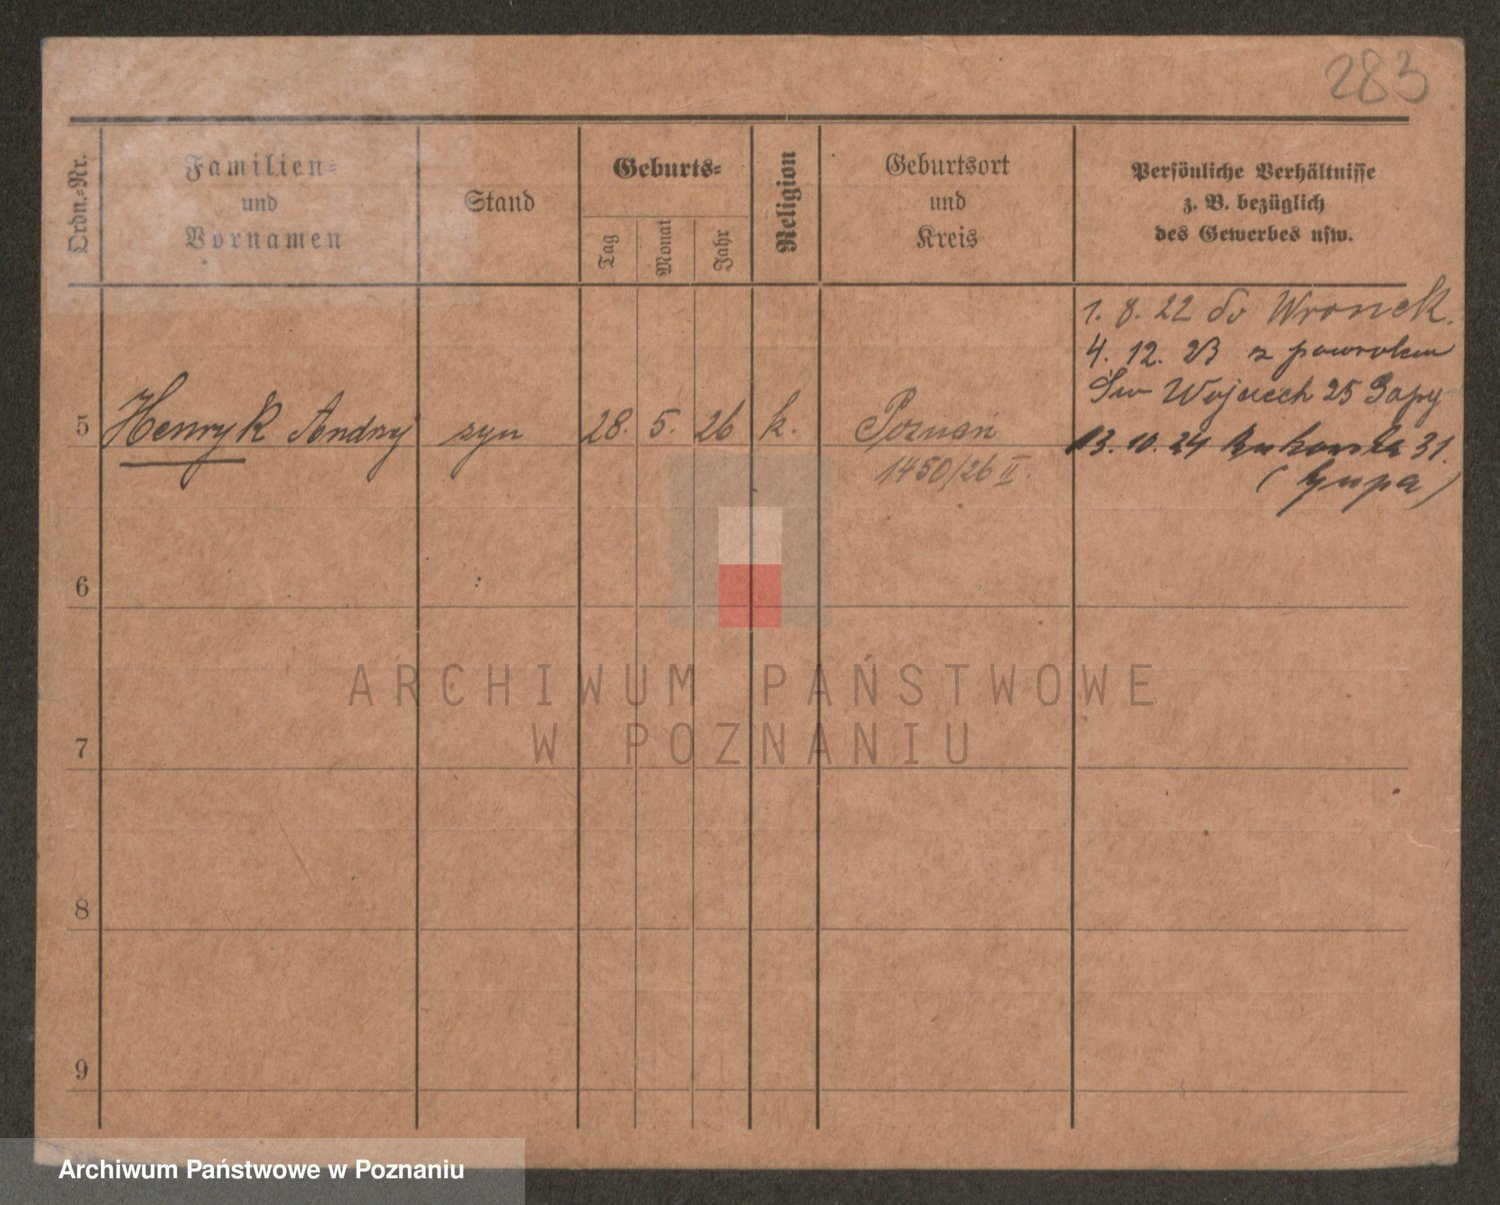 283
Ordn.-Nr.
Familien-
und
Vornamen
Stand
Geburts-
Tag
Monat
Jahr
Religion
Geburtsort
und
Kreis
Persönliche Verhältnisse
z. B. bezüglich
des Gewerbes usw.
1. 8. 22 do Wronek.
4. 12. 23 z powrotem
Św Wojciech 25 Gapy
5 Henryk Andrzej syn 28. 5. 26 k. Poznań
13. 10. 24 Bukowska 31.
1450/26 II.
(Gupa)
6
7
8
9
ARCHIWUM PAŃSTWOWE
W POZNANIU
Archiwum Państwowe w Poznaniu